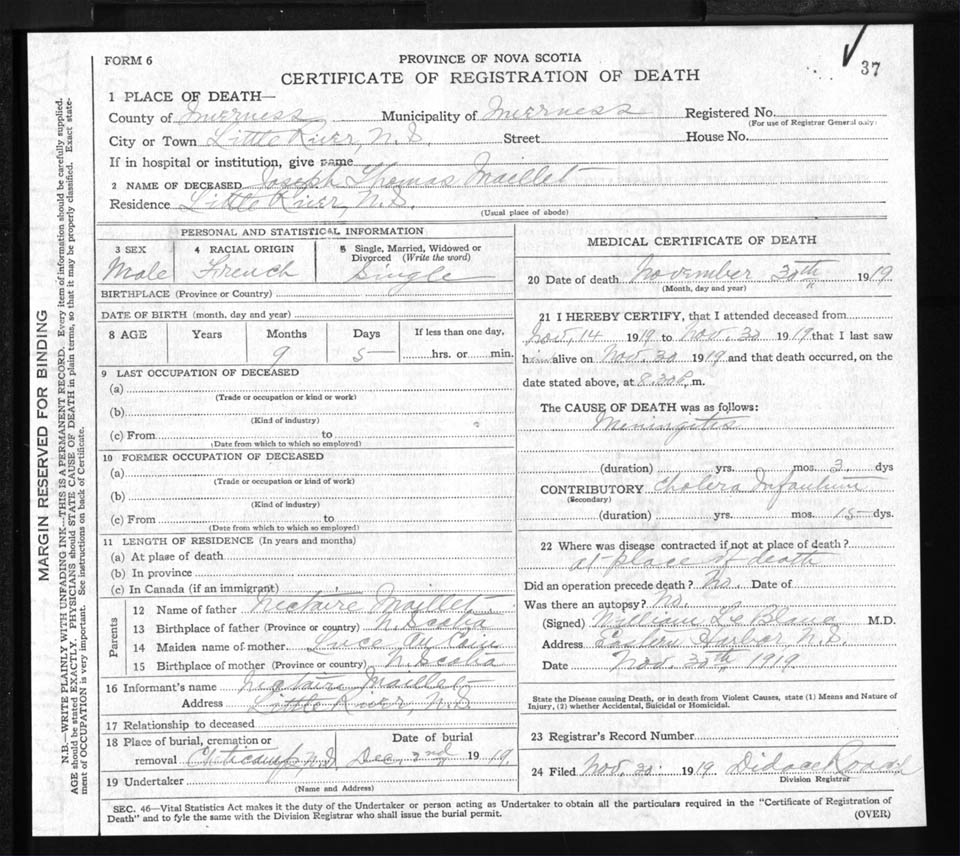 FORM 6
PROVINCE OF NOVA SCOTIA
37
CERTIFICATE OF REGISTRATION OF DEATH
1 PLACE OF DEATH—
County of Inverness Municipality of Inverness Registered No.
(For use of Registrar General only)
City or Town Little River, N.S. Street House No.
If in hospital or institution, give name
2 NAME OF DECEASED Joseph Thomas Maillet
Residence Little River, N.S.
(Usual place of abode)
PERSONAL AND STATISTICAL INFORMATION
3 SEX 4 RACIAL ORIGIN 5 Single, Married, Widowed or Divorced (Write the word)
Male French Single
BIRTHPLACE (Province or Country)
DATE OF BIRTH (month, day and year)
8 AGE Years Months Days If less than one day,
9 5 hrs. or min.
9 LAST OCCUPATION OF DECEASED
(a)
(Trade or occupation or kind or work)
(b)
(Kind of industry)
(c) From to
(Date from which to which so employed)
10 FORMER OCCUPATION OF DECEASED
(a)
(Trade or occupation or kind of work)
(b)
(Kind of industry)
(c) From to
(Date from which to which so employed)
11 LENGTH OF RESIDENCE (In years and months)
(a) At place of death
(b) In province
(c) In Canada (if an immigrant)
Parents
12 Name of father Nectaire Maillet
13 Birthplace of father (Province or country) N. Scotia
14 Maiden name of mother Luce
15 Birthplace of mother (Province or country) N. Scotia
16 Informant's name Nectaire Maillet
Address Little River, N.S
17 Relationship to deceased
18 Place of burial, cremation or removal Cheticamp, N.S Date of burial Dec. 2nd, 1919.
19 Undertaker
(Name and Address)
MEDICAL CERTIFICATE OF DEATH
20 Date of death November 30th 1919
(Month, day and year)
21 I HEREBY CERTIFY, that I attended deceased from
Nov. 14 1919 to Nov. 30 1919 that I last saw
him alive on Nov. 30 1919 and that death occurred, on the
date stated above, at 8.30P. m.
The CAUSE OF DEATH was as follows:
Meningitis
(duration) yrs. mos. 3 dys
CONTRIBUTORY Cholera Infantum
(Secondary)
(duration) yrs. mos. 15 dys.
22 Where was disease contracted if not at place of death?
at place of death
Did an operation precede death? No. Date of
Was there an autopsy? No.
(Signed) William Le Blanc M.D.
Address Eastern Harbor, N.S.
Date Nov. 30th, 1919
State the Disease causing Death, or in death from Violent Causes, state (1) Means and Nature of
Injury, (2) whether Accidental, Suicidal or Homicidal.
23 Registrar's Record Number
24 Filed Nov. 30. 1919 Didace
Division Registrar
SEC. 46—Vital Statistics Act makes it the duty of the Undertaker or person acting as Undertaker to obtain all the particulars required in the "Certificate of Registration of
Death" and to fyle the same with the Division Registrar who shall issue the burial permit.
(OVER)
MARGIN RESERVED FOR BINDING
N.B.—WRITE PLAINLY WITH UNFADING INK—THIS IS A PERMANENT RECORD. Every item of information should be carefully supplied.
AGE should be stated EXACTLY. PHYSICIANS should STATE CAUSE OF DEATH in plain terms, so that it may be properly classified. Exact state-
ment of OCCUPATION is very important. See instructions on back of Certificate.